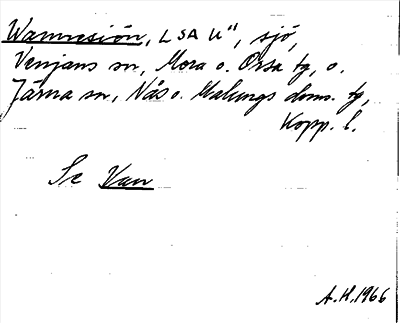 Wamnesjön, LSA U", sjö,
Venjans sn, Mora o. Orsa tg, o.
Järna sn, Nås o. Malungs doms. tg,
Kopp. l.
Se Van
A.H. 1966